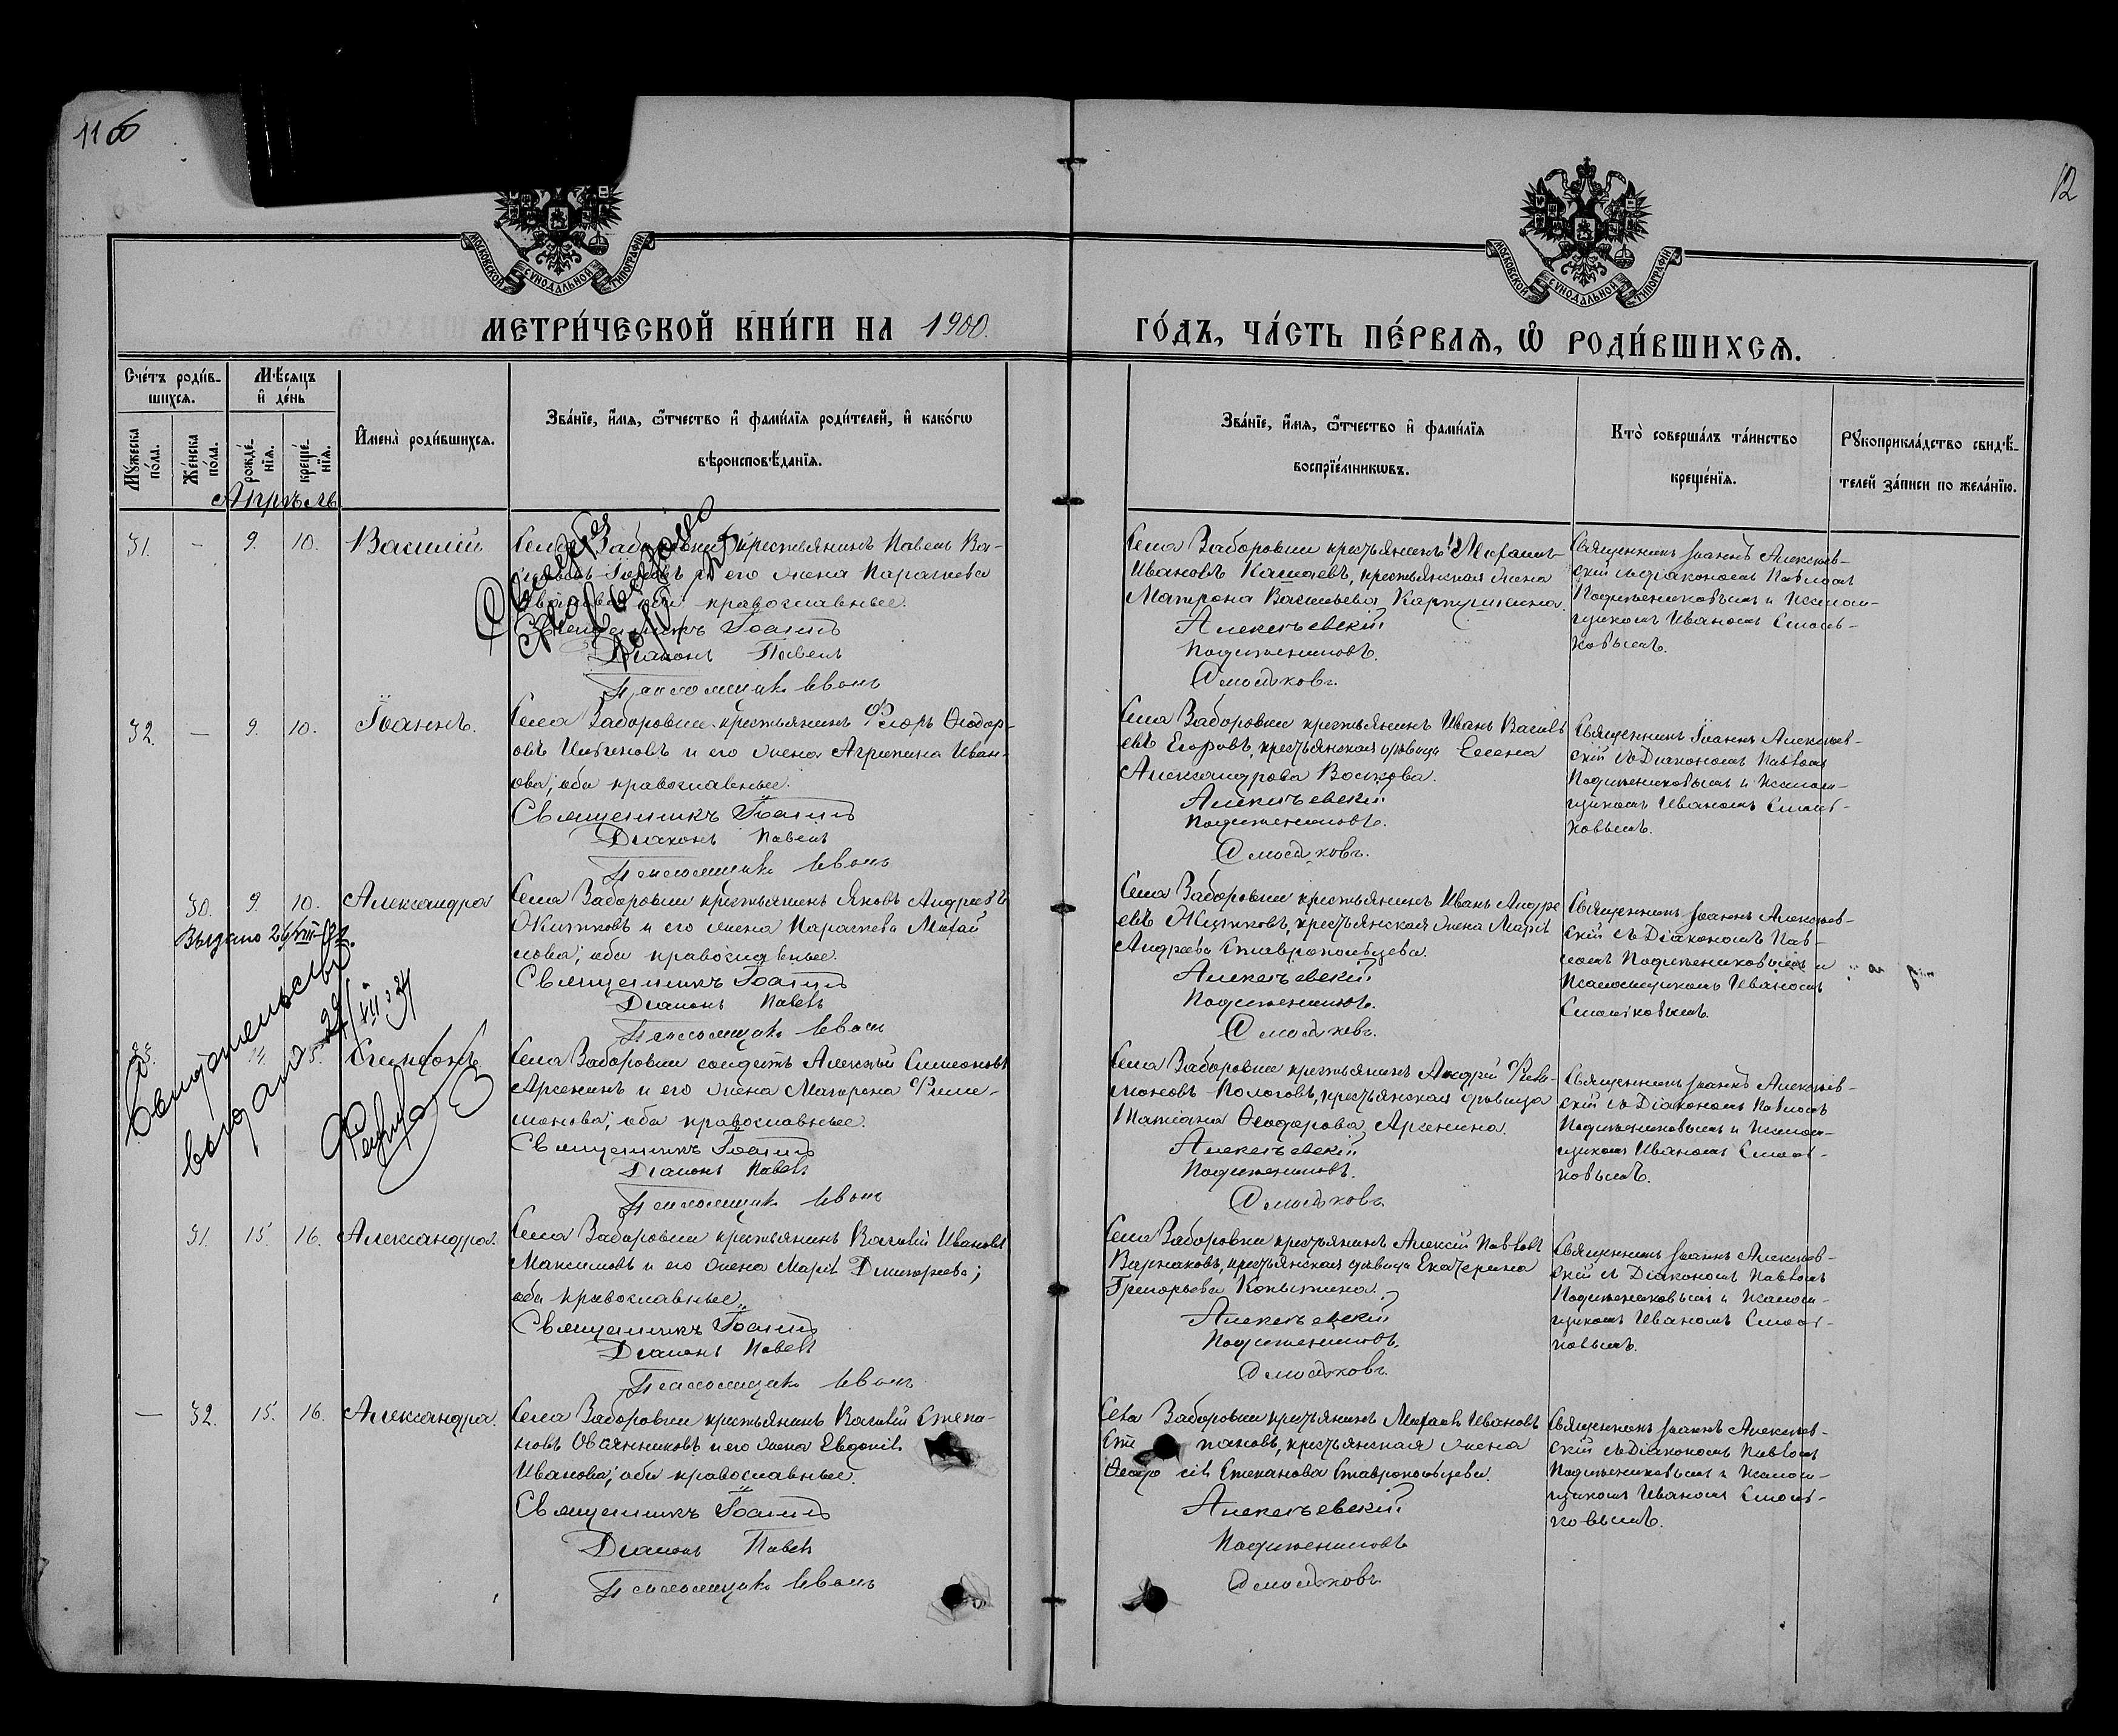 11 об
12
МОСКОВСКОЙ СѴНОДАЛЬНОЙ ТИПОГРАФІИ
МОСКОВСКОЙ СѴНОДАЛЬНОЙ ТИПОГРАФІИ
МЕТРИ́ЧЕСКОЙ КНИ́ГИ НА 1900.
ГО́ДЪ, ЧА́СТЬ ПЕ́РВАѦ, Ѡ҆ РОДИ́ВШИХСѦ.
Сче́тъ роди́в-
шихсѧ.
Мѣ́сѧцъ
и҆ де́нь
Мꙋ́жеска
по́ла.
Же́нска
по́ла.
рожде́-
нїѧ.
креще́-
нїѧ.
И҆мена̀ роди́вшихсѧ.
Зва́нїе, и҆́мѧ, ѻ҆́тчество и҆ фами́лїѧ роди́телей, и҆ како́гѡ
вѣроисповѣ́данїѧ.
Зва́нїе, и҆́мѧ, ѻ҆́тчество и҆ фами́лїѧ
воспрїе́мникѡвъ.
Кто̀ соверша́лъ та́инство
креще́нїѧ.
Рꙋкоприкла́дство свидѣ́-
телей за́писи по жела́нїю.
Апрѣль
31. – 9. 10. Василій
Села Заборовки крестьянинъ Павелъ Ва-
и его жена Параскева
православные.
Священникъ Іоаннъ
Діаконъ Павелъ
Псаломщикъ Иванъ
Села Заборовки крестьянинъ
Ивановъ Кашаевъ, крестьянская жена
Матрона Васильева
Алексѣевскій
Подъячениковъ
Смольковъ.
Священникъ Іоаннъ Алексѣев-
скій съ Діакономъ Павломъ
и псалом-
щикомъ Иваномъ Смоль-
ковымъ.
32. – 9. 10. Іоаннъ.
Села Заборовки крестьянинъ Флоръ Ѳеодор-
овъ и его жена Агрипина Иван-
ова; оба православные.
Священникъ Іоаннъ
Діаконъ Павелъ
Псаломщикъ Иванъ
Села Заборовки крестьянинъ Иванъ Василь
евъ Егоровъ, крестьянская дѣвица Елена
Александрова
Алексѣевскій
Смольковъ.
Священникъ Іоаннъ Алексѣев-
скій съ Діакономъ Павломъ
и псалом-
щикомъ Иваномъ Смоль-
ковымъ.
30. 9. 10. Александра
Выдано
Села Заборовки крестьянинъ Яковъ Андреевъ
Житковъ и его жена Параскева Михай
лова; оба православные.
Священникъ Іоаннъ
Діаконъ Павелъ
Псаломщикъ Иванъ
Села Заборовки крестьянинъ Иванъ Андре
евъ Житковъ, крестьянская жена Марія
Андреева Ставропольцева.
Алексѣевскій
Смольковъ.
Священникъ Іоаннъ Алексѣев-
скій съ Діакономъ Пав-
ломъ и
псаломщикомъ Иваномъ
Смольковымъ.
Свидѣтельство
выдано
Симеонъ
Села Заборовки солдатъ Алексѣй Симеоновъ
Арсенинъ и его жена Матрона Фили-
монова; оба православные.
Священникъ Іоаннъ
Діаконъ Павелъ
Псаломщикъ Иванъ
Села Заборовки крестьянинъ Андрей Фили-
моновъ Пологовъ, крестьянская дѣвица
Татіана Ѳеодорова Арсенина.
Алексѣевскій
Смольковъ.
Священникъ Іоаннъ Алексѣев-
скій съ Діакономъ Павломъ
и псалом-
щикомъ Иваномъ Смоль-
ковымъ.
31. 15. 16. Александра.
Села Заборовки крестьянинъ Василій Ивановъ
Максимовъ и его жена Марія Димитріева;
оба православные.
Священникъ Іоаннъ
Діаконъ Павелъ
Псаломщикъ Иванъ
Села Заборовки крестьянинъ Алексѣй Павловъ
Варнаковъ, крестьянская дѣвица Екатерина
Григорьева Копытина.
Алексѣевскій
Смольковъ.
Священникъ Іоаннъ Алексѣев-
скій съ Діакономъ Павломъ
и псалом-
щикомъ Иваномъ Смоль-
ковымъ.
– 32. 15. 16. Александра.
Села Заборовки крестьянинъ Василій Степа-
новъ Овсянниковъ и его жена Евдокія
Иванова; оба православные.
Священникъ Іоаннъ
Діаконъ Павелъ
Псаломщикъ Иванъ
Села Заборовки крестьянинъ Михаилъ Ивановъ
пановъ, крестьянская жена
Степанова Ставропольцева.
Алексѣевскій
Смольковъ.
Священникъ Іоаннъ Алексѣев-
скій съ Діакономъ Павломъ
и псалом-
щикомъ Иваномъ Смоль-
ковымъ.